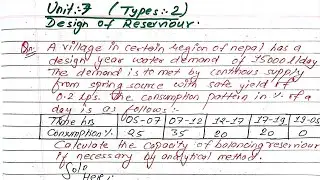 Unit:-7 (Types:-2)
Design of Reserviour.
Qn: A village in certain region of nepal has a
design year water demand of 15000 l/day
The demand is to met by continous supply
from spring source with safe yield of
0.2 lps. The consumption pattern in % of a
day is as follows:-
Time hrs 05-07 07-12 12-17 17-19 19-05
Consumption % 25 35 20 20 0
Calculate the capacity of balancing reserviour
if necessary by analytical method.
Solⁿ
Here;